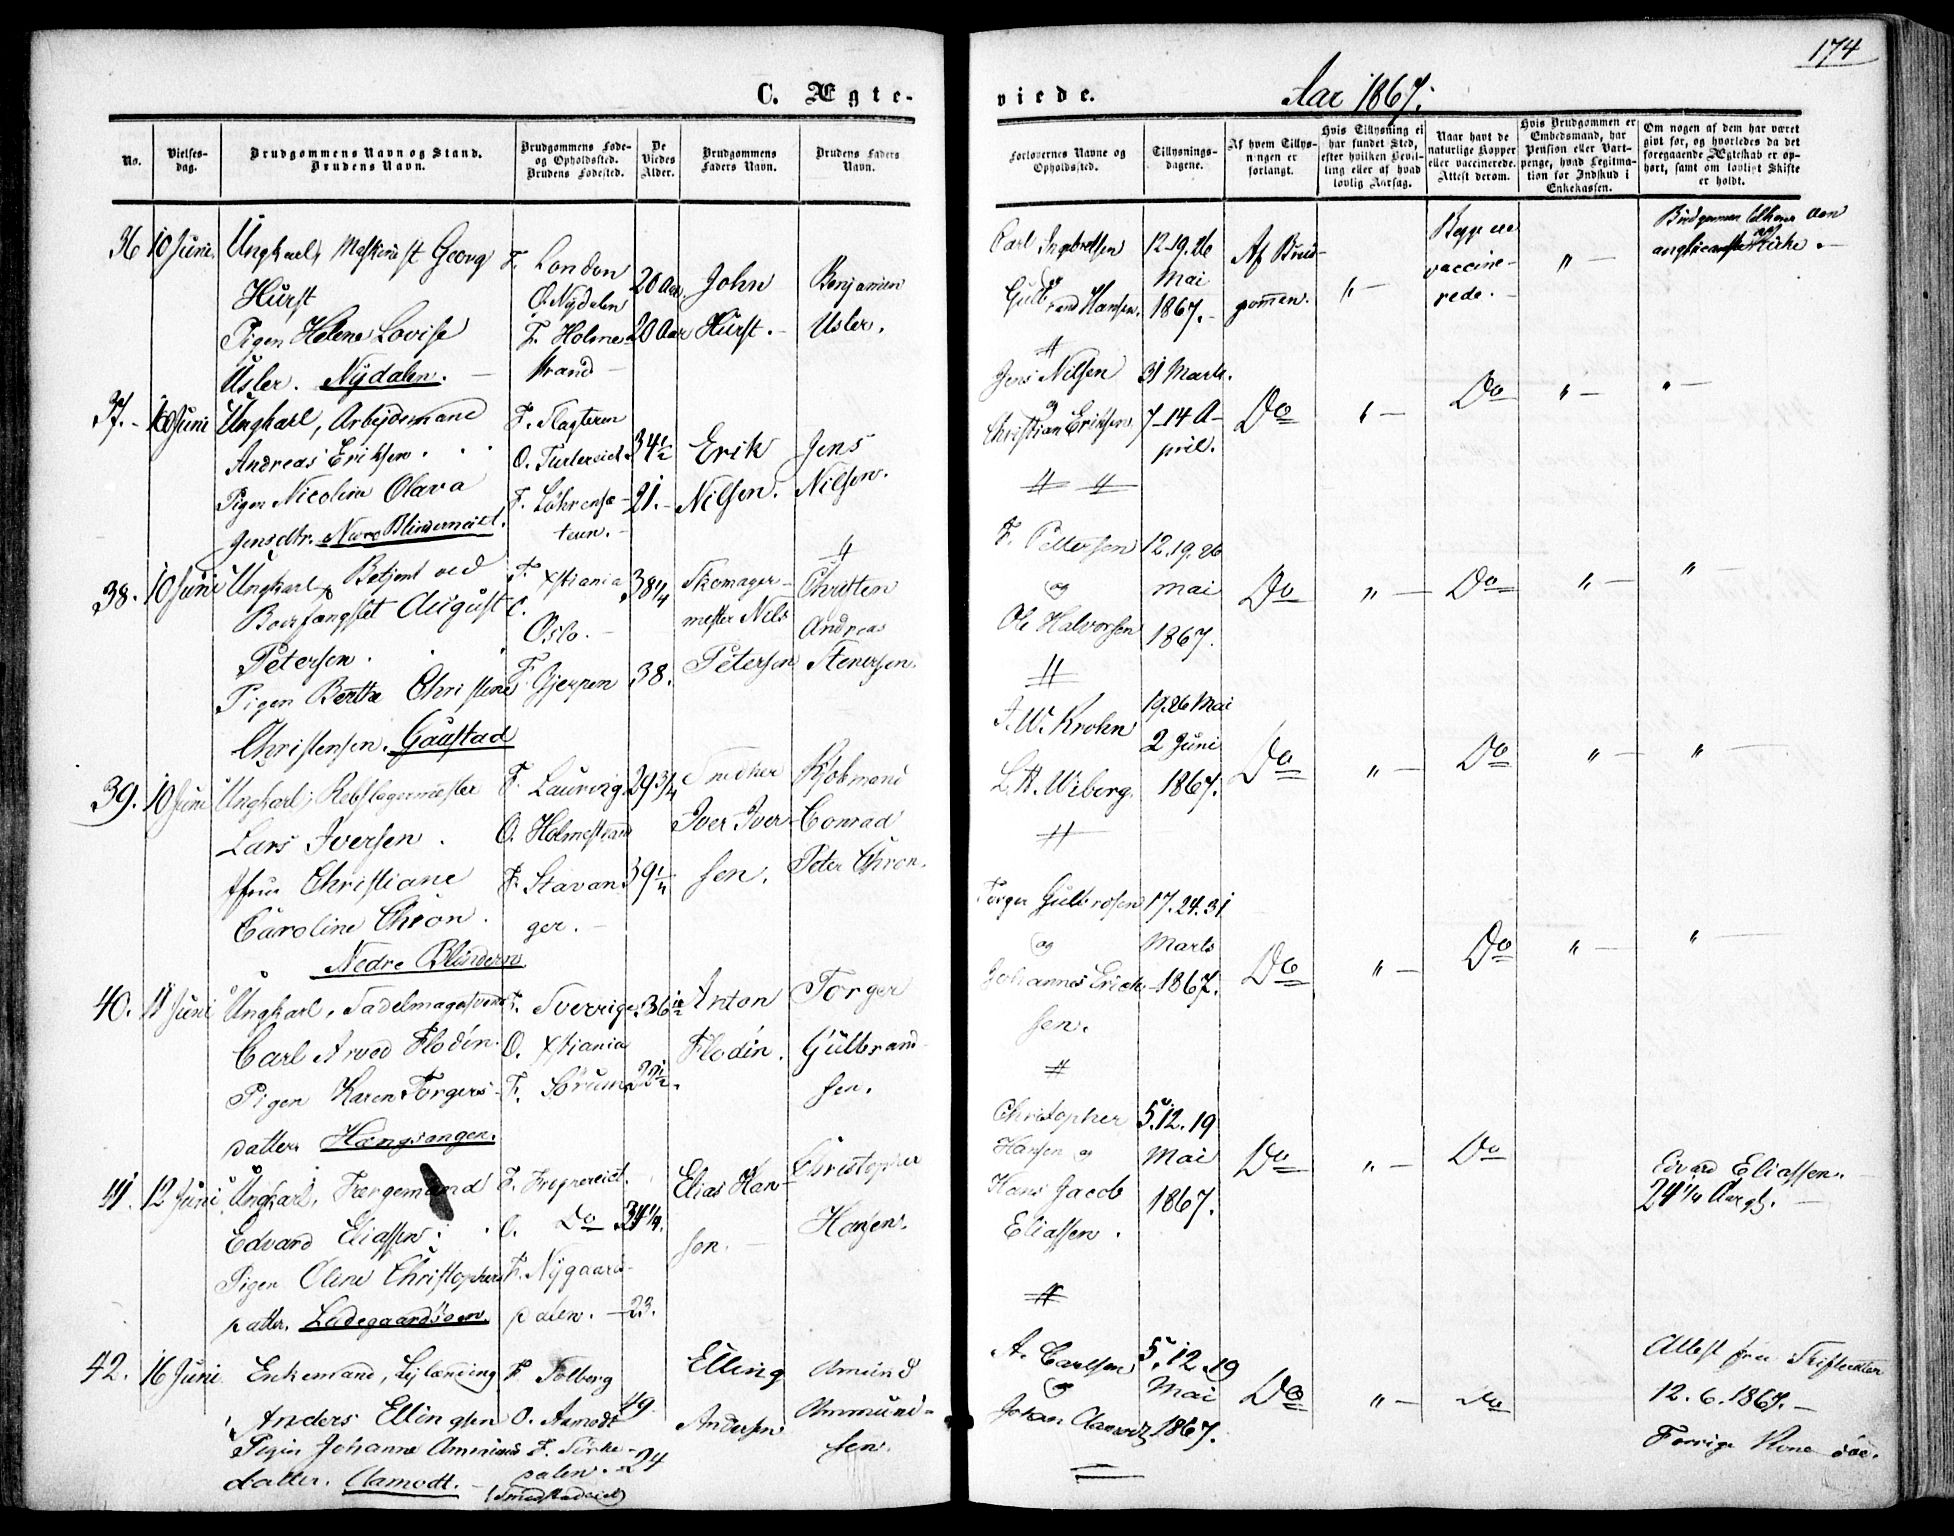 174
C. Ægteviede. Aar 1867.
No.
Vielses-
dag.
Brudgommens Navn og Stand.
Brudens Navn.
Brudgommens Føde-
og Opholdssted.
Brudens Fødested.
De
Viedes
Alder.
Brudgommens
Faders Navn.
Brudens Faders
Navn.
Forlovernes Navne og
Opholdssted.
Tillysnings-
dagene.
Af hvem Tillys-
ningen er
forlangt.
Hvis Tillysning ei
har fundet Sted,
efter hvilken Bevil-
ling eller af hvad
lovlig Aarsag.
Naar havt de
naturlige Kopper
eller vaccinerede.
Attest derom.
Hvis Brudgommen er
Embedsmand, har
Pension eller Vart-
penge, hvad Legitima-
tion for Indskud i
Enkekassen.
Om nogen af dem har været
givt før, og hvorledes da det
foregaaende Ægteskab er op-
hørt, samt om lovligt Skifte
er holdt.
36 10 Juni Ungkarl, Maskinist Georg
Hurst
Pigen Helene Lovise
Usler. Nydalen.
F. London
O. Nydalen
F. Holme-
strand
20 Aar
20 Aar
John
Hurst.
Benjamin
Usler.
Carl Ingebretsen
og
Gulbrand Hansen.
12-19.26
Mai
1867.
Af Brud-
gommen.
" -
Begge ere
vaccine-
rede.
" -
Kirke.
37. 10 Juni Ungkarl, Arbeidsmand
Andreas Eriksen.
Pigen Nicoline Olava
Jensdtr. Nedre Blinderneiet.
F.
O.
F.
teren.
34½
21.
Erik
Nilsen.
Jens
Nilsen.
Jens Nilsen
og
Christian Eriksen
31 Marts.
7-14 A-
pril.
Do
" -
Do
" -
" -
38. 10 Juni Ungkarl, Betjent ved
Bodsfængslet August
Petersen.
Pigen Berthe Christine
Christensen. Gaustad
F. Xstiania
O.
Oslo.
F. Gjerpen
38¼
38.
Skomager-
mester Nils
Petersen
Christen
Andreas
Stenersen
F. Pettersen
og
Ole Halvorsen
12.19.26
Mai
1867.
Do
" -
Do
" -
" -
39. 10 Juni Ungkarl, Rebslagermester
Lars Iversen.
Christiane
Caroline Chron.
Nedre Blindern
F. Laurvig
O. Holmestrand
F. Stavan-
ger.
29¾
39¼
Snedker
Iver Iver-
sen.
Kjøbmand
Conrad
Peter Chron.
J. W. Krohn
L. H. Wiborg.
19.26 Mai
2 Juni
1867.
Do
" -
Do
" -
" -
40. 11 Juni Ungkarl, Sadelmagersvend
Carl Arved Flodin.
Pigen Karen Torgers-
datter. Hængsangen.
F. Sverrige
O. Xstiania
F. Sørum
36
Anton
Flodin.
Torger
Gulbrand-
sen.
Torger Gulbrandsen
og
Johannes Erick-
sen.
17.24.31
Marts
1867.
Do
" -
Do
" -
" -
41. 12 Juni Ungkarl, Færgemand
Edvard Eliassen.
Pigen Oline Christophers-
datter. Ladegaardsøen.
F.
O. Do
F. Nygaards-
dalen.
24¼.
23.
Elias Han-
sen.
Christopher
Hansen.
Christopher
Hansen og
Hans Jacob
Eliassen.
5.12.19
Mai
1867.
Do
" -
Do
Edvard Eliassen.
24¼ Aar gl.
42. 16 Juni Enkemand,
Anders Ellingsen
Pigen Johanne Ammunds-
datter. Aamodt.
F. Solberg
O. Aamodt
F. Sørke-
dalen.
49
24
Elling
Andersen
Amund
Ammund-
sen.
A. Carlsen
og
Johan
5.12.19
Mai
1867.
Do
" -
Do
Attest fra Skifteretten
12.6.1867.
Forrige Kone død.